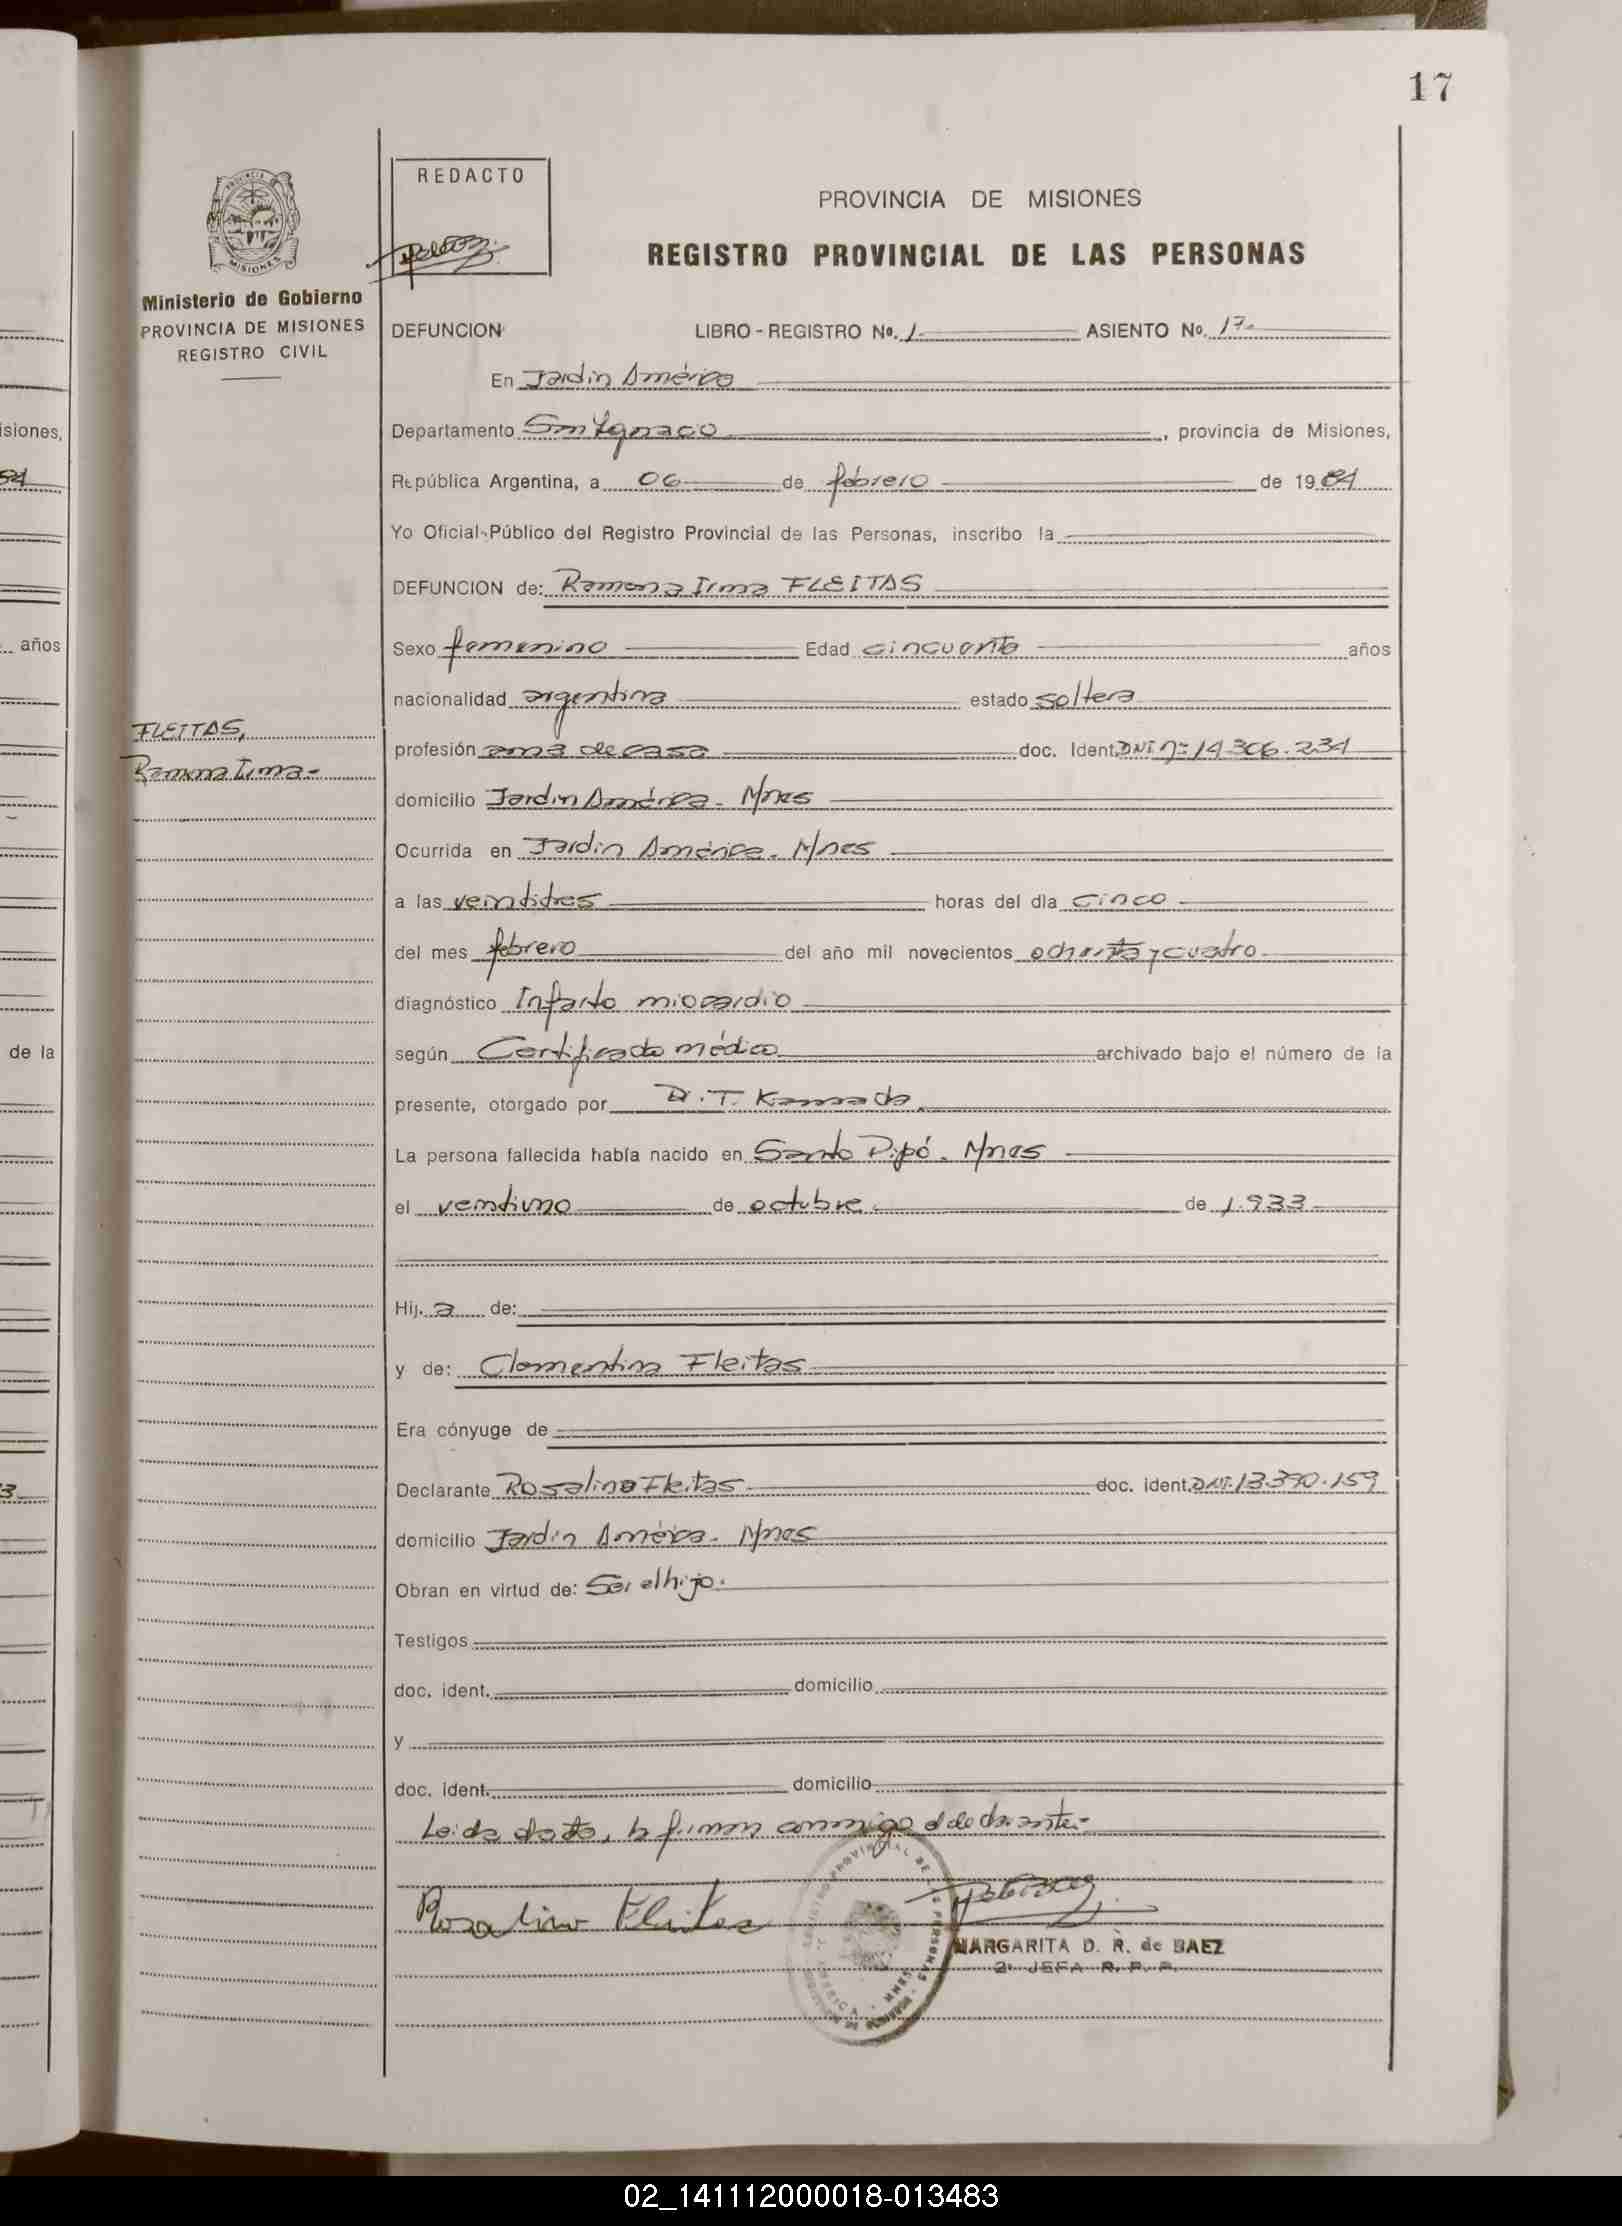 17
REDACTO
PROVINCIA DE MISIONES
REGISTRO PROVINCIAL DE LAS PERSONAS
PROVINCIA DE MISIONES
Ministerio de Gobierno
PROVINCIA DE MISIONES
REGISTRO CIVIL
DEFUNCION LIBRO - REGISTRO No. 1 ASIENTO No. 17
En Jardín América
Departamento San Ignacio, provincia de Misiones,
República Argentina, a 06 de febrero de 1984
Yo Oficial Público del Registro Provincial de las Personas, inscribo la
DEFUNCION de: Ramona Irma FLEITAS
Sexo femenino Edad cincuenta años
nacionalidad argentina estado soltera
FLEITAS,
Ramona Irma-
profesión ama de casa doc. Ident. DNI nº 14.306.234
domicilio Jardín América - Mnes
Ocurrida en Jardín América - Mnes
a las veintitres horas del día cinco
del mes febrero del año mil novecientos ochenta y cuatro
diagnóstico Infarto miocardio
según Certificado médico archivado bajo el número de la
presente, otorgado por Dr. T. Kamada
La persona fallecida había nacido en Santo Pipó - Mnes
el veintiuno de octubre de 1.933
Hij a de:
y de: Clementina Fleitas
Era cónyuge de
Declarante Rosalino Fleitas doc. ident. DNI. 13.390.159
domicilio Jardín América - Mnes
Obran en virtud de: Ser el hijo.
Testigos
doc. ident. domicilio
y
doc. ident. domicilio
Leída acta, la firman conmigo el declarante.-
Rosalino Fleitas
MARGARITA D. R. de BAEZ
2ª JEFA R. P. P.
isiones,
84
años
de la
3
02_141112000018-013483